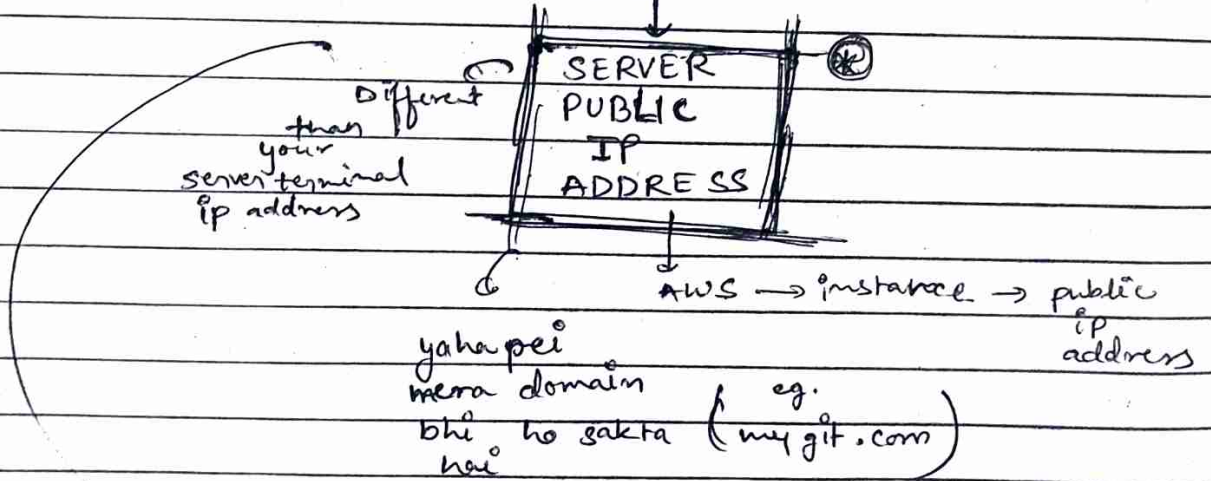 SERVER
PUBLIC
IP
ADDRESS
Different
than
your
server terminal
ip address
AWS → instance → public
ip
address
yaha pei
mera domain
bhi ho sakta (eg. my git.com)
hai